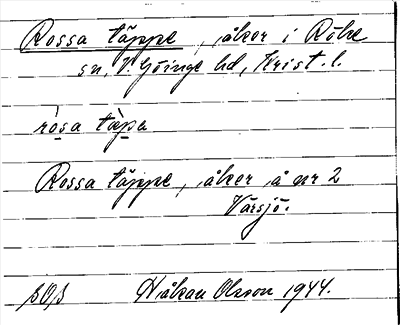 Rossa täppe, åker i Röke
sn, V. Göinge hd, Krist. l.
ròsa tæ̀pa
Rossa täppe, åker å nr 2
Värsjö.
Håkan Olsson 1944.